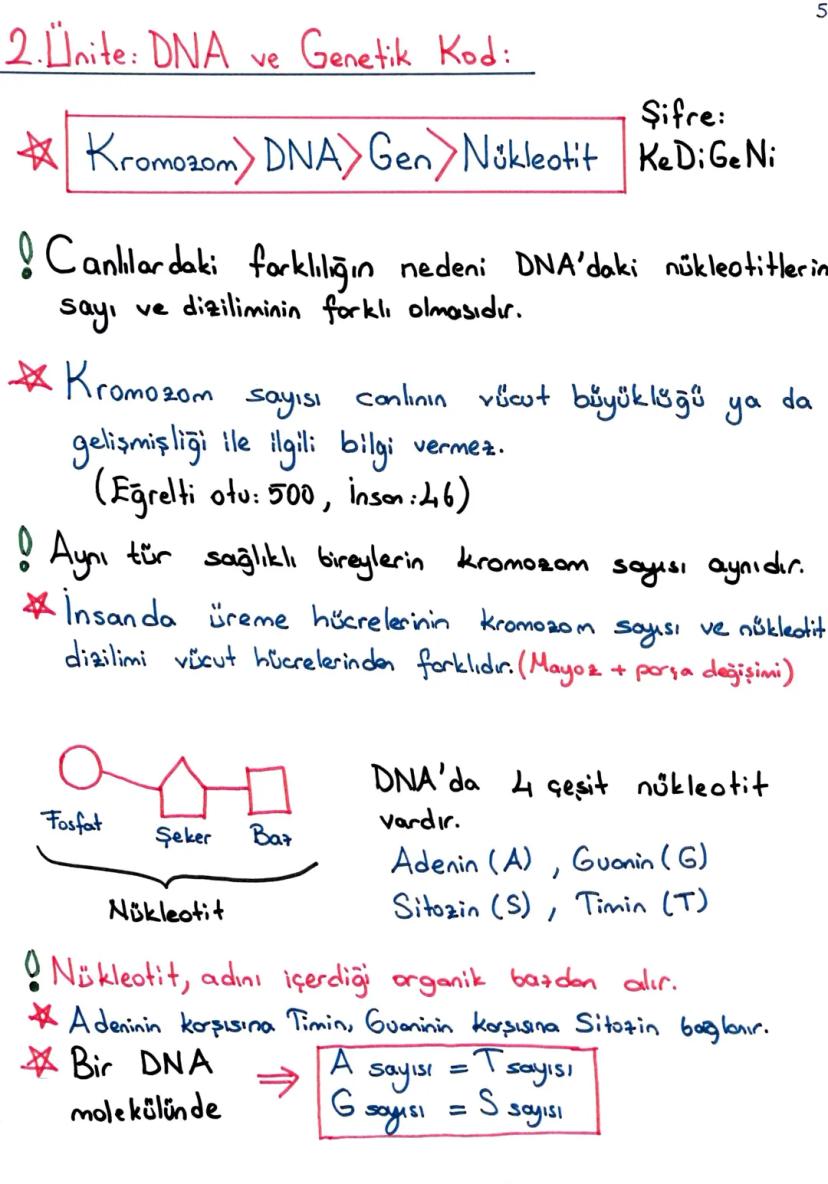 5
2.Ünite: DNA ve Genetik Kod:
Kromozom > DNA > Gen > Nükleotit
Şifre:
KeDiGeNi
! Canlılardaki farklılığın nedeni DNA'daki nükleotitlerin
sayı ve diziliminin farklı olmasıdır.
Kromozom sayısı canlının vücut büyüklüğü ya da
gelişmişliği ile ilgili bilgi vermez.
(Eğrelti otu: 500, İnsan: 46)
! Aynı tür sağlıklı bireylerin kromozom sayısı aynıdır.
İnsanda üreme hücrelerinin kromozom sayısı ve nükleotit
dizilimi vücut hücrelerinden farklıdır. (Mayoz + parça değişimi)
Fosfat Şeker Baz
Nükleotit
DNA'da 4 çeşit nükleotit
vardır.
Adenin (A), Guanin (G)
Sitozin (S), Timin (T)
! Nükleotit, adını içerdiği organik bazdan alır.
Adeninin karşısına Timin, Guaninin karşısına Sitozin bağlanır.
Bir DNA
molekülünde
⇒
A sayısı = T sayısı
G sayısı = S sayısı